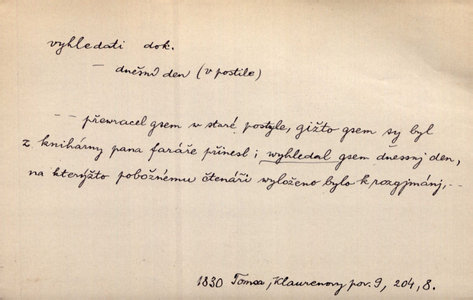 vyhledati dok.
— dnešní den (v postile)
— přewracel gsem w staré postyle, gižto gsem sy byl
z knihárny pana faráře přinesl; wyhledal gsem dnessnj den,
na kterýžto pobožnému čtenáři wyloženo bylo k rozgjmánj, --
1830 Tomsa, Klaurenovy pov. 9, 204, 8.